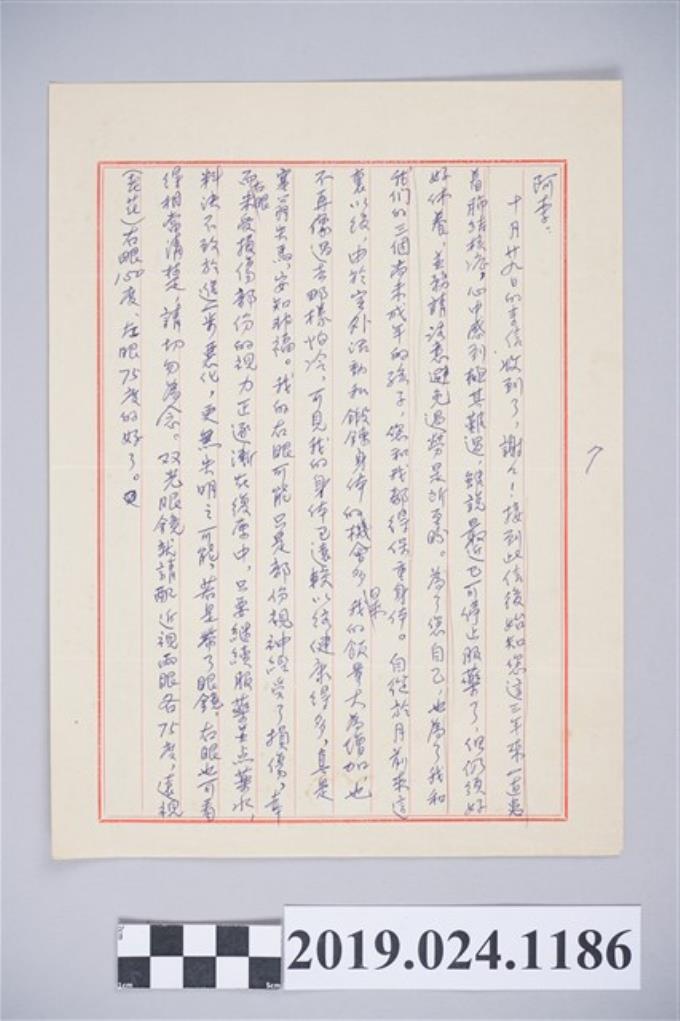 7
阿李：
十月廿九日的來信收到了，謝々！接到此信後始知您這三年來一直患
着肺結核症，心中感到極其難過，雖說最近已可停止服藥了，但仍須好
好休養，並務請注意避免過勞是所至盼。為了您自己，也為了我和
我們的三個尚未成年的孩子，您和我都得保重身体。自從於月前來這
裏以後，由於室外活動和鍛鍊身体的機會多，我的飯量大為增加，也
不再像過去那樣怕冷，可見我的身体已遠較以往健康得多，真是
塞翁失馬，安知非福。我的右眼可能只是部份視神經受了損傷，幸
而右眼未受損傷部份的視力正逐漸在復原中，只要継續服藥並点藥水，
料決不致於進一步惡化，更無失明之可能。若是帶了眼鏡，右眼也可看
得相當清楚，請切勿為念。双光眼鏡就請配近視両眼各75度，遠視
(老花)右眼150度、左眼75度的好了。
2019.024.1186
1cm
5cm